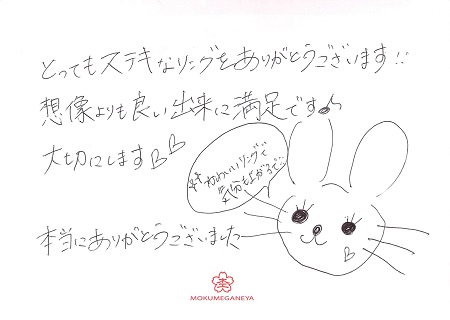 とってもステキなリングをありがとうございます!!
想像よりも良い出来に満足です♪
大切にします
かわいいリングで
気分も上がるで
本当にありがとうございました
MOKUMEGANEYA